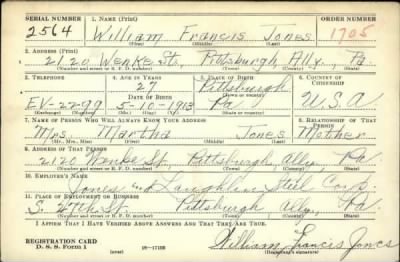 SERIAL NUMBER 1. NAME (Print) ORDER NUMBER
2564 William Francis Jones 1705
(First) (Middle) (Last)
2. ADDRESS (Print)
2120 Wenke St., Pittsburgh Ally., Pa.
(Number and street or R. F. D. number) (Town) (County) (State)
3. TELEPHONE 4. AGE IN YEARS 5. PLACE OF BIRTH 6. COUNTRY OF CITIZENSHIP
27 Pittsburgh
DATE OF BIRTH
EV-2299 5-10-1913 Pa. U.S.A.
7. NAME OF PERSON WHO WILL ALWAYS KNOW YOUR ADDRESS 8. RELATIONSHIP OF THAT PERSON
Mrs. Martha Jones Mother
(Mr., Mrs., Miss) (First) (Middle) (Last)
9. ADDRESS OF THAT PERSON
2120 Wenke St., Pittsburgh, Ally., Pa.
(Number and street or R. F. D. number) (Town) (County) (State)
10. EMPLOYER'S NAME
Jones and Laughlin Steel Corp.
11. PLACE OF EMPLOYMENT OR BUSINESS
S. 27th St. Pittsburgh Ally., Pa.
(Number and street or R. F. D. number) (Town) (County) (State)
I AFFIRM THAT I HAVE VERIFIED ABOVE ANSWERS AND THAT THEY ARE TRUE.
REGISTRATION CARD
D. S. S. Form 1 (over) William Francis Jones